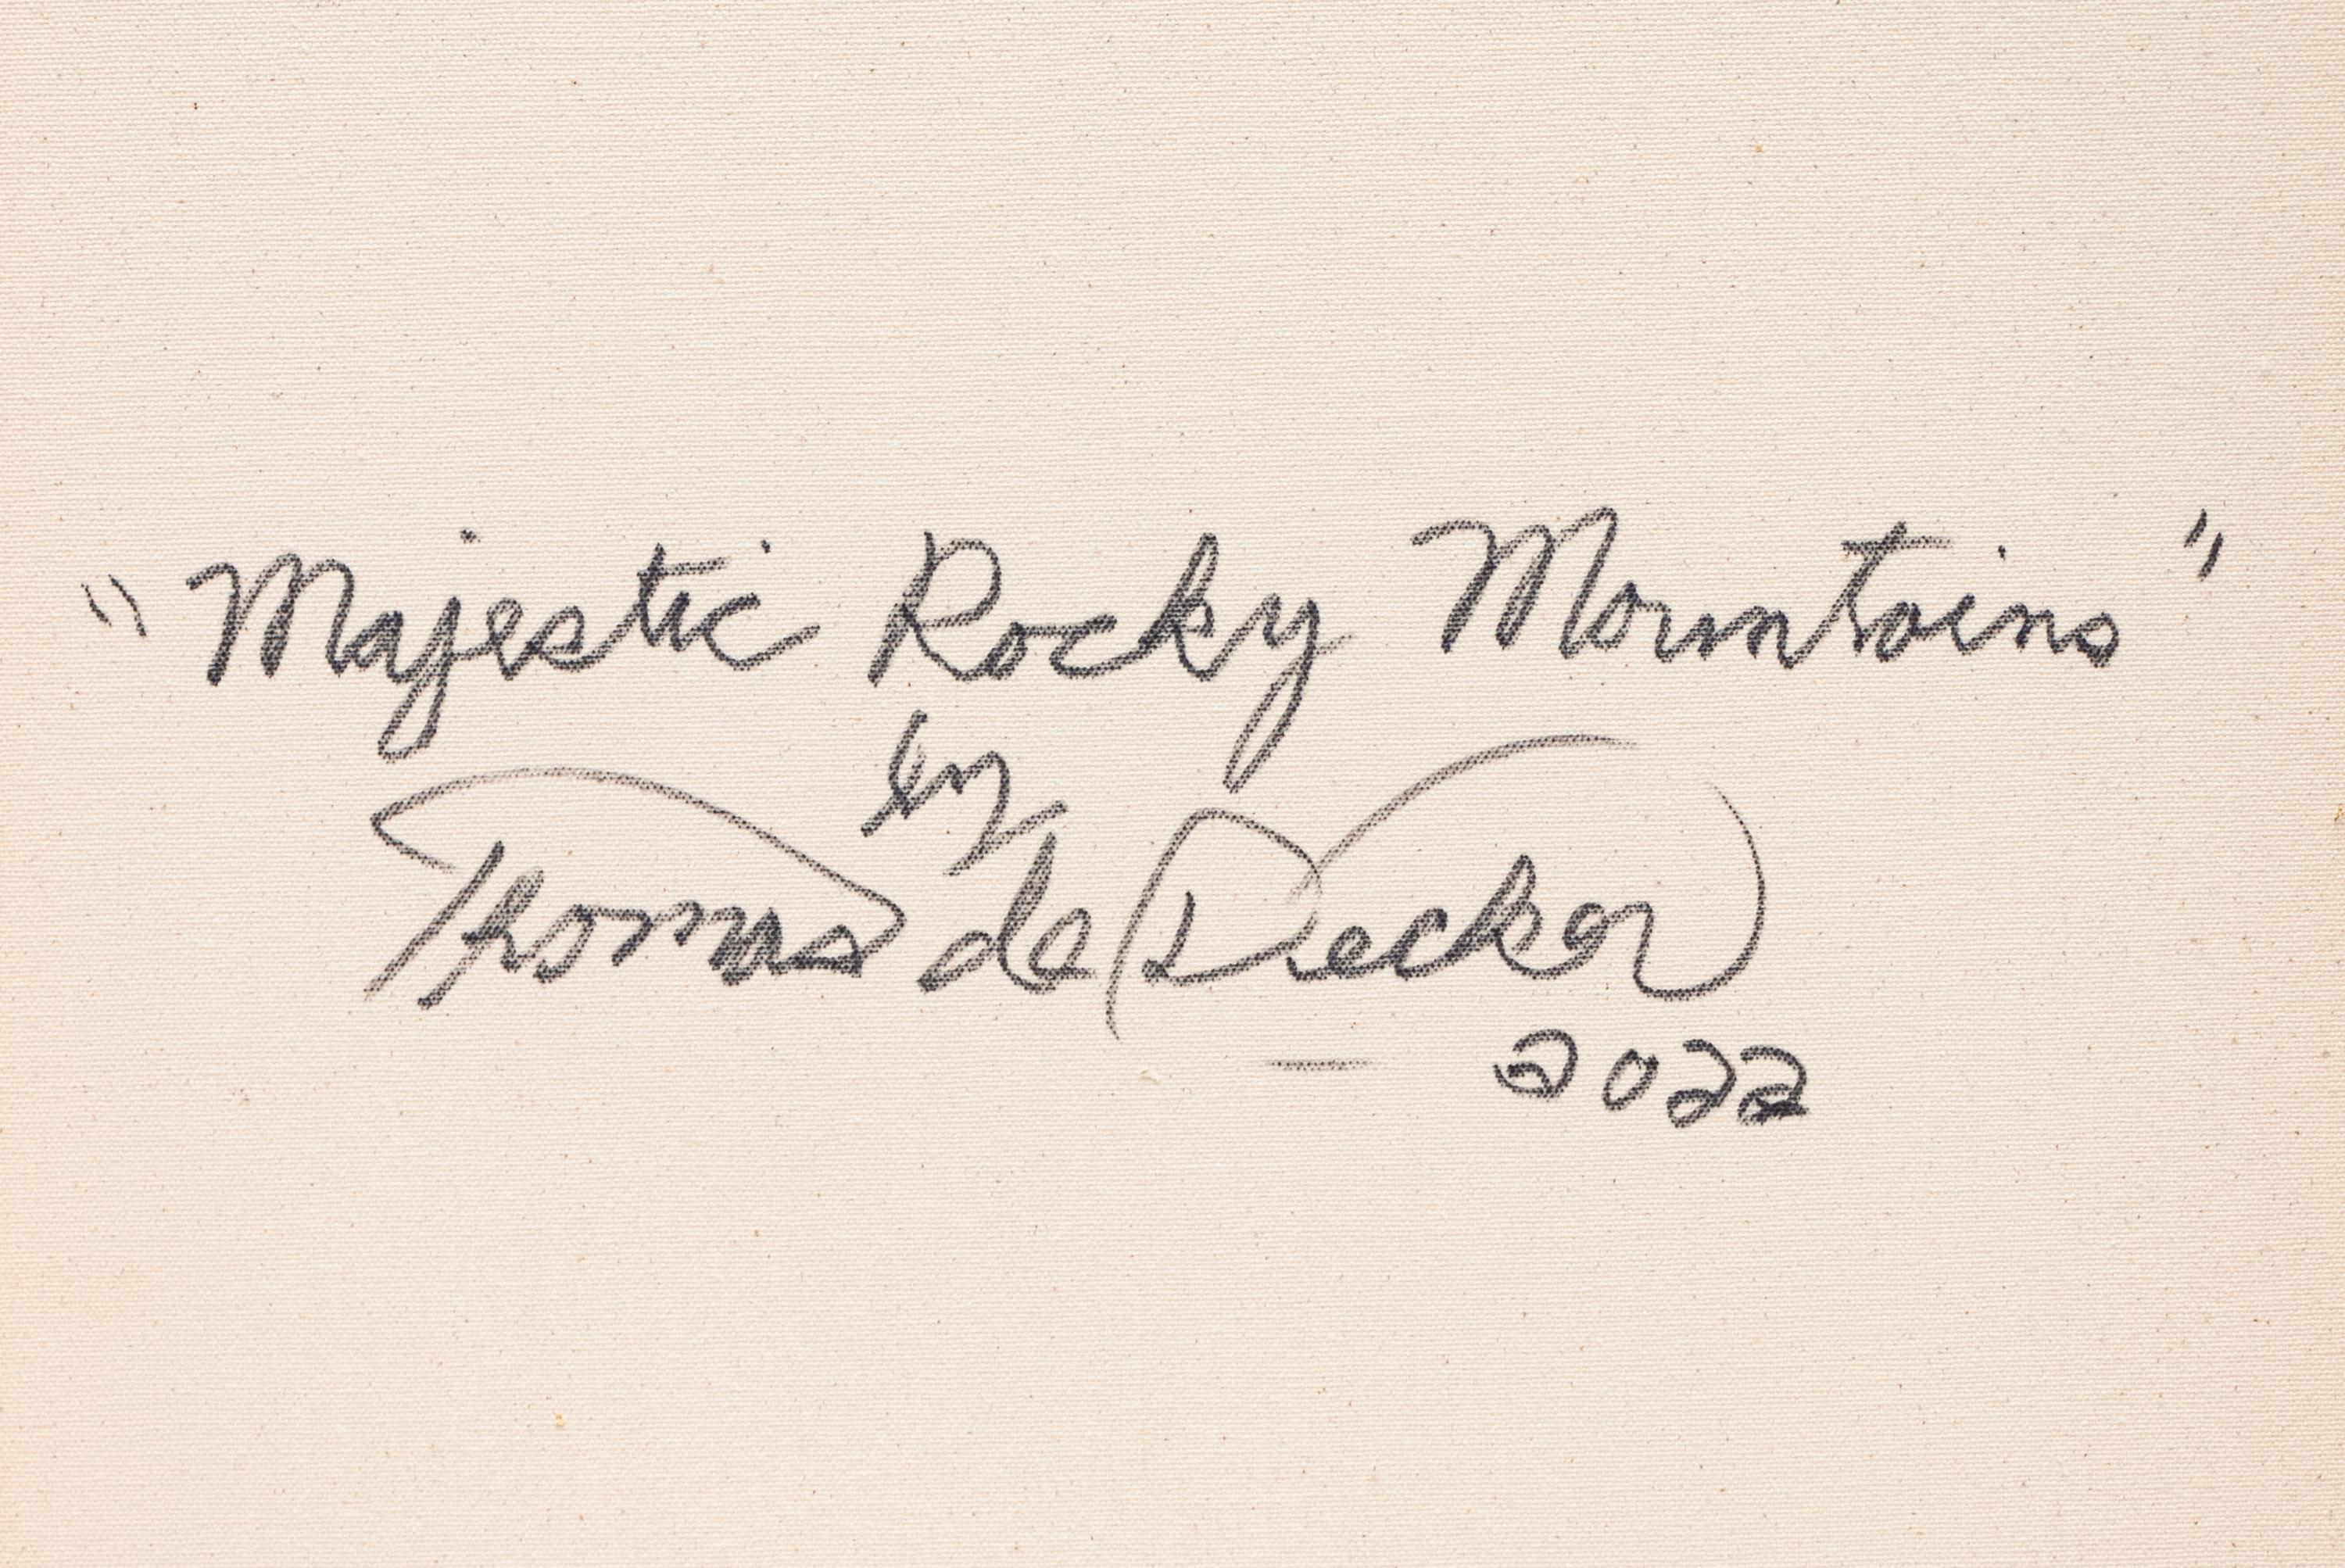 "Majestic Rocky Mountains"
by
Thomas de Decker
2022